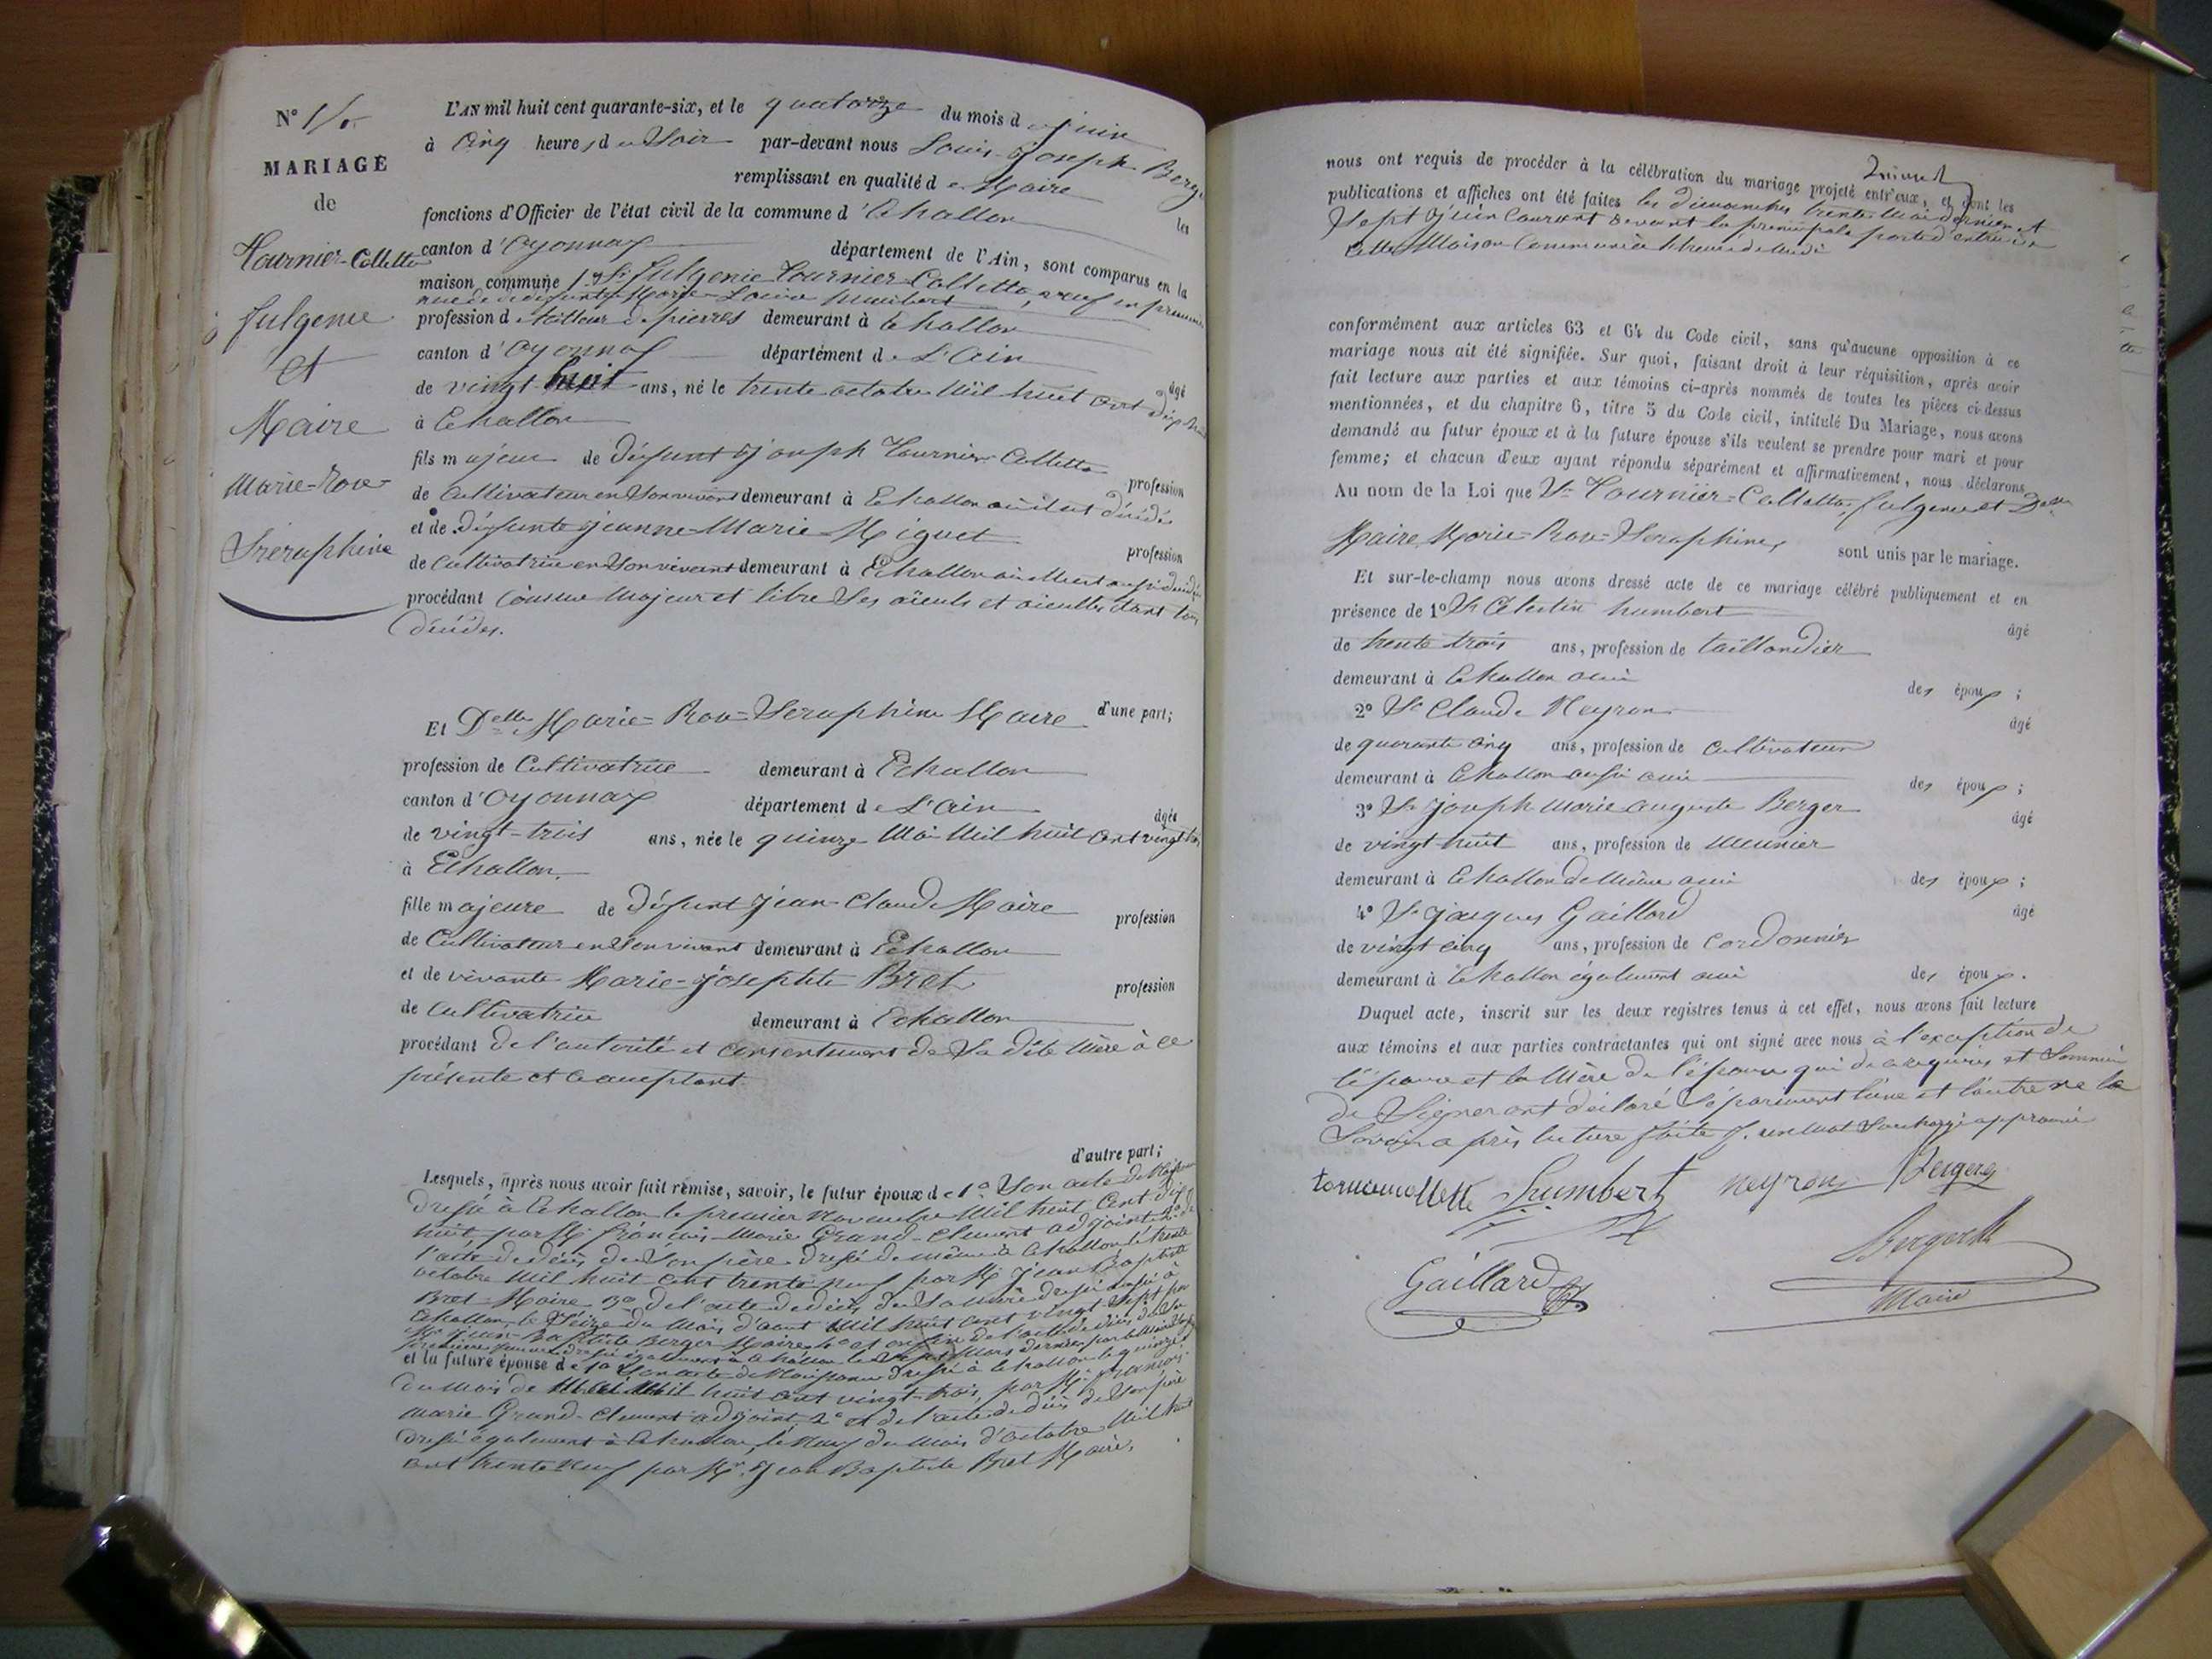 N° 1
MARIAGE
de
Tournier-Colletta
fulgence
et
Maire
Marie-Rose
Séraphine
L'AN mil huit cent quarante-six, et le quatorze du mois de juin
à Cinq heures du Soir par-devant nous Louis-joseph Berger
remplissant en qualité de Maire les
fonctions d'Officier de l'état civil de la commune d'Echallon
canton d'Oyonnax département de l'Ain, sont comparus en la
maison commune 1° Sr fulgence Tournier-Colletta, veuf en premières
noces de défunte Marie-Louise humbert
profession de tailleur de pierres demeurant à Echallon
canton d'Oyonnax département de L'Ain âgé
de vingt huit ans, né le trente octobre Mil huit cent dix huit
à Echallon
fils majeur de défunt Joseph Tournier Colletta profession
de Cultivateur en Son vivant demeurant à Echallon où il est décédé
et de défunte jeanne-Marie Miguet profession
de Cultivatrice en Son vivant demeurant à Echallon où elle est aussi décédée
procédant Comme Majeur et libre Ses aïeuls et aïeulles étant tous
décédés.
d'une part;
Et Delle Marie-Rose-Séraphine Maire
profession de Cultivatrice demeurant à Echallon
canton d'Oyonnax département de L'Ain âgée
de vingt-trois ans, née le quinze Mai Mil huit Cent vingt trois
à Echallon.
fille majeure de défunt Jean-Claude Maire profession
de Cultivateur en Son vivant demeurant à Echallon
et de vivante Marie-josephte Bret profession
de Cultivatrice demeurant à Echallon
procédant de l'autorité et consentement de Sa dite Mère à ce
présente et l'acceptant.
d'autre part;
Lesquels, après nous avoir fait remise, savoir, le futur époux de 1° Son acte de Naissance
dressé à Echallon le premier Novembre Mil huit Cent dix
huit par Mr françois-Marie Grand-Clement adjoint 2° de
l'acte de décès de Son père dressé de même à Echallon le trente
octobre Mil huit cent trente neuf par Mr Jean Baptiste
Bret Maire 3° de l'acte de décès de Sa mère dressé aussi à
Echallon le Seize du Mois d'août Mil huit cent vingt Sept par
Mr Jean-Baptiste Berger Maire 4° et enfin de l'acte de décès de Sa
première femme dressé également à Echallon le Sept Mars dernier par
et la future épouse de 1° Son acte de Naissance dressé à Echallon le quinze
du Mois de Mai Mil huit cent vingt-trois, par Mr françois-
Marie Grand-Clement adjoint 2° et de l'acte de décès de Son père
dressé également à Echallon, le Neuf du Mois d'octobre Mil huit
cent trente Neuf par Mr Jean Baptiste Bret Maire,
nous ont requis de procéder à la célébration du mariage projeté entr'eux, et dont les
publications et affiches ont été faites les dimanches trente Mai dernier et
Sept Juin Courant devant la principale porte d'entrée de
cette Maison Commune à heure de Midi
conformément aux articles 63 et 64 du Code civil, sans qu'aucune opposition à ce
mariage nous ait été signifiée. Sur quoi, faisant droit à leur réquisition, après avoir
fait lecture aux parties et aux témoins ci-après nommés de toutes les pièces ci-dessus
mentionnées, et du chapitre 6, titre 5 du Code civil, intitulé Du Mariage, nous avons
demandé au futur époux et à la future épouse s'ils veulent se prendre pour mari et pour
femme; et chacun d'eux ayant répondu séparément et affirmativement, nous déclarons
Au nom de la Loi que Sr Tournier-Colletta fulgence et Delle
Maire Marie-Rose-Séraphine, sont unis par le mariage.
Et sur-le-champ nous avons dressé acte de ce mariage célébré publiquement et en
présence de 1° Sr Célestin humbert âgé
de trente trois ans, profession de taillandier
demeurant à Echallon ami des époux;
2° Sr Claude Neyron âgé
de quarante cinq ans, profession de Cultivateur
demeurant à Echallon aussi ami des époux;
3° Sr joseph Marie auguste Berger âgé
de vingt huit ans, profession de Meunier
demeurant à Echallon de Même ami des époux;
4° Sr jacques Gaillard âgé
de vingt cinq ans, profession de cordonnier
demeurant à Echallon également ami des époux.
Duquel acte, inscrit sur les deux registres tenus à cet effet, nous avons fait lecture
aux témoins et aux parties contractantes qui ont signé avec nous à l'exception de
l'épouse et la Mère de l'épouse qui de ce requises et Sommées
de Signer ont déclaré Séparément l'une et l'autre ne le
Savoir après lecture faite Mot Surchargé approuvé
Humbert neyron Berger
Gaillard
Berger
Maire